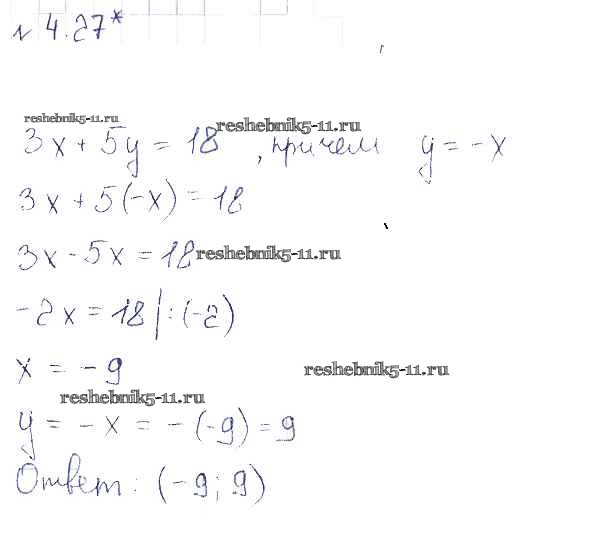 № 4.27*
reshebnik5-11.ru
reshebnik5-11.ru
3x + 5y = 18, причем y = -x
3x + 5(-x) = 18
3x - 5x = 18
reshebnik5-11.ru
-2x = 18 |:(-2)
x = -9
reshebnik5-11.ru
reshebnik5-11.ru
y = -x = -(-9) = 9
Ответ: (-9; 9)